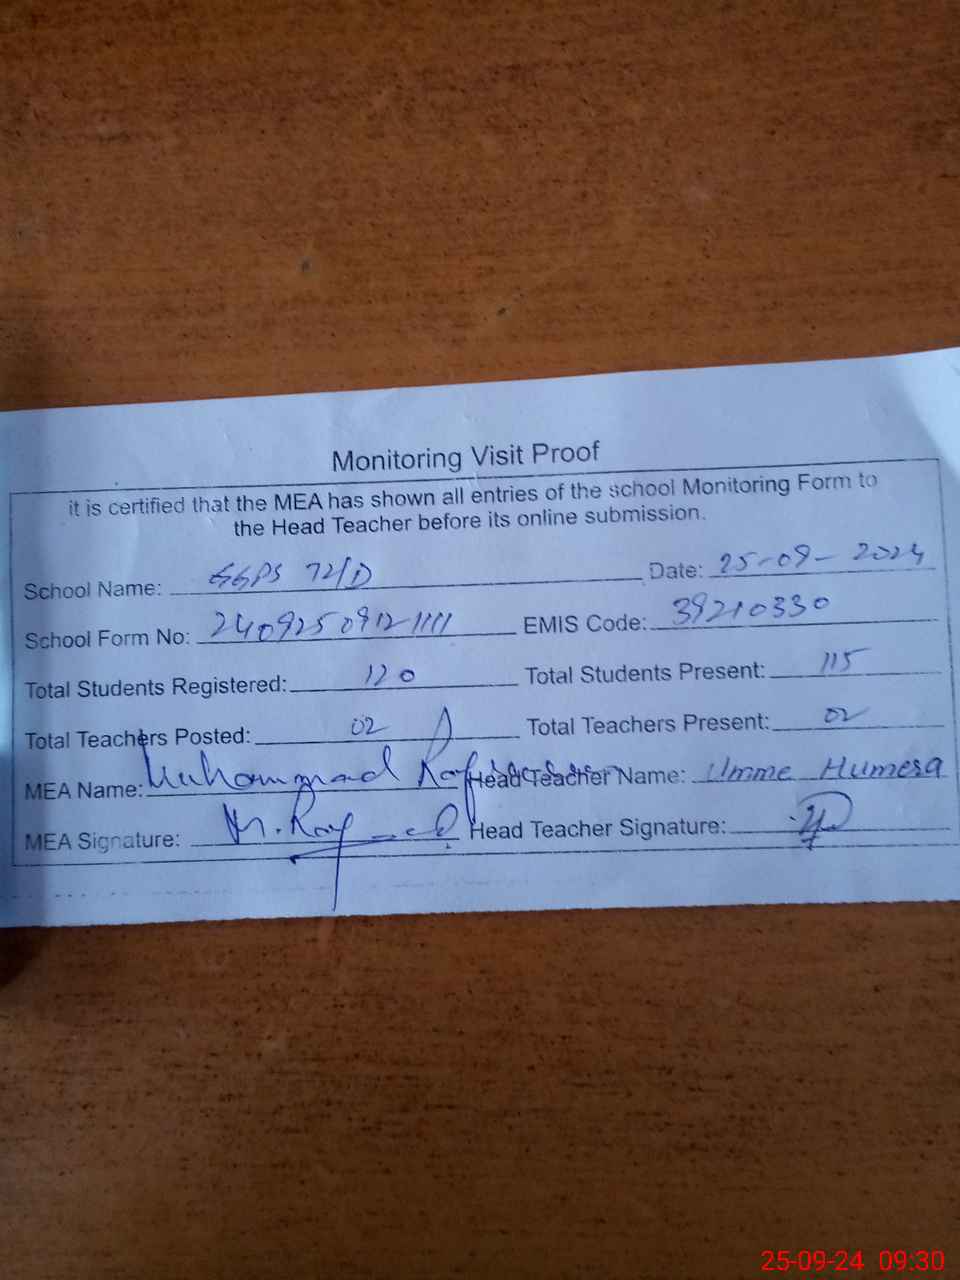 Monitoring Visit Proof
it is certified that the MEA has shown all entries of the school Monitoring Form to
the Head Teacher before its online submission.
School Name: GGPS 72/D Date: 25-09-2024
School Form No: 24092509121111 EMIS Code: 39210330
Total Students Registered: 120 Total Students Present: 115
Total Teachers Posted: 02 Total Teachers Present: 02
MEA Name: Muhammad Head Teacher Name: Umme Humera
MEA Signature: Head Teacher Signature:
25-09-24 09:30